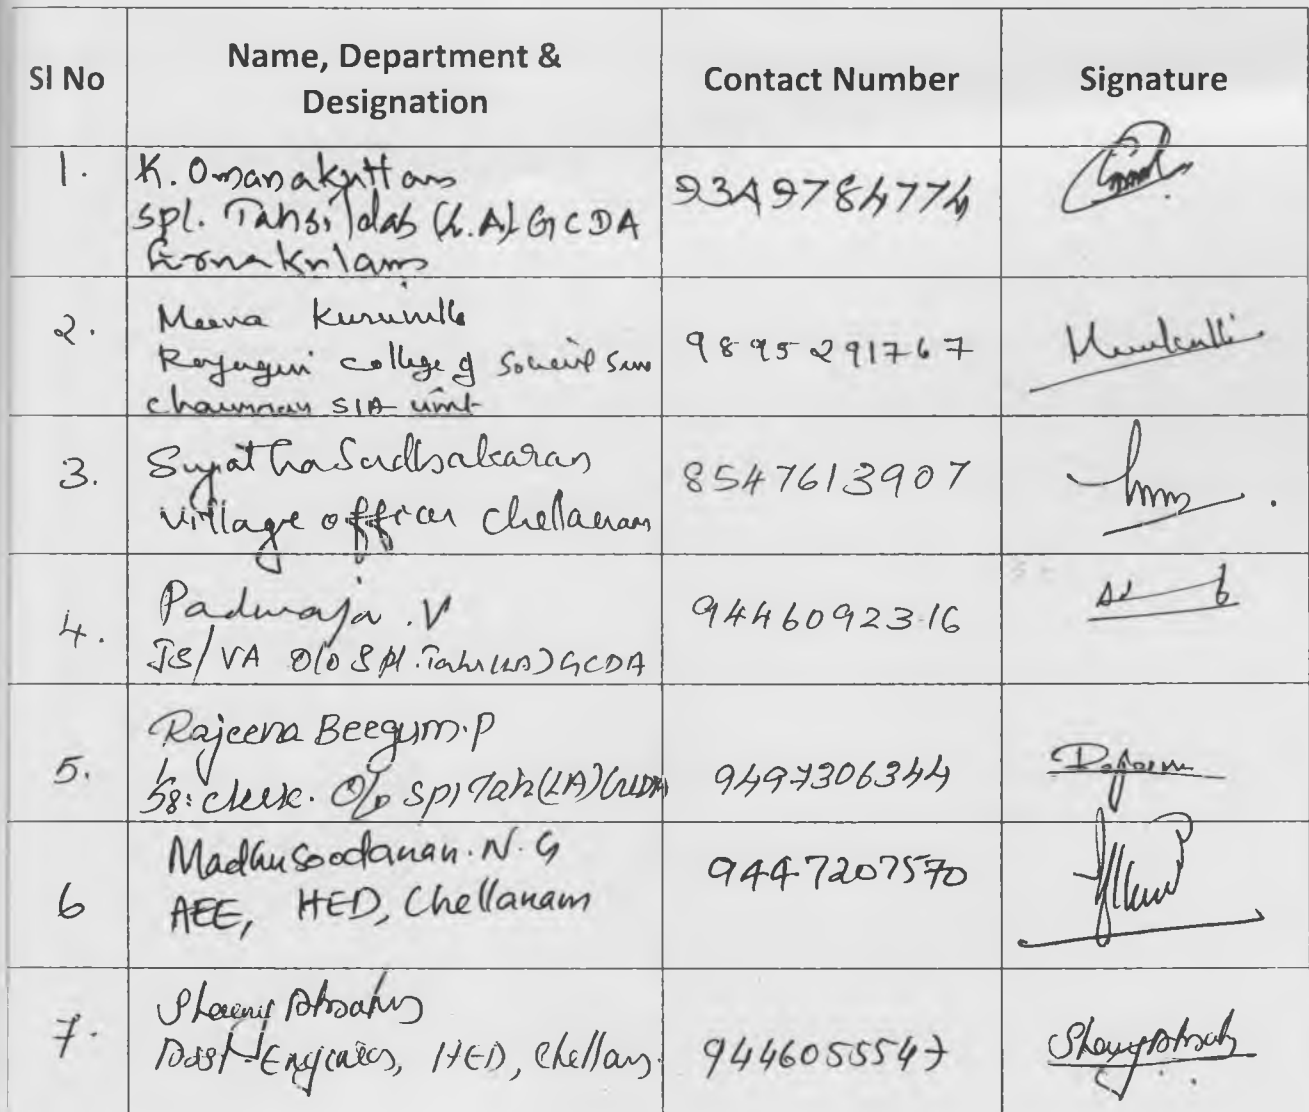 Sl No
Name, Department &
Designation
Contact Number
Signature
1.
K. Omanakuttan
Spl. Tahsildar (L.A) GCDA
Ernakulam
9349784774
2.
Meena Kuruvilla
Rajagiri college of Social
Chairman SIA unit
9895291767
3.
Sujatha Sudhakaran
Village officer Chellanam
8547613907
4.
Padmaja .V
JS/VA O/o Spl. Tahr (LA) GCDA
9446092316
5.
Rajeena Beegum.P
Sr: clerk. O/o Spl Tah (LA) GCDA
9497306344
6
Madhusoodanan. N. G
AEE, HED, Chellanam
9447207570
7.
Asst Engineer, HED, Chellam.
9446055547